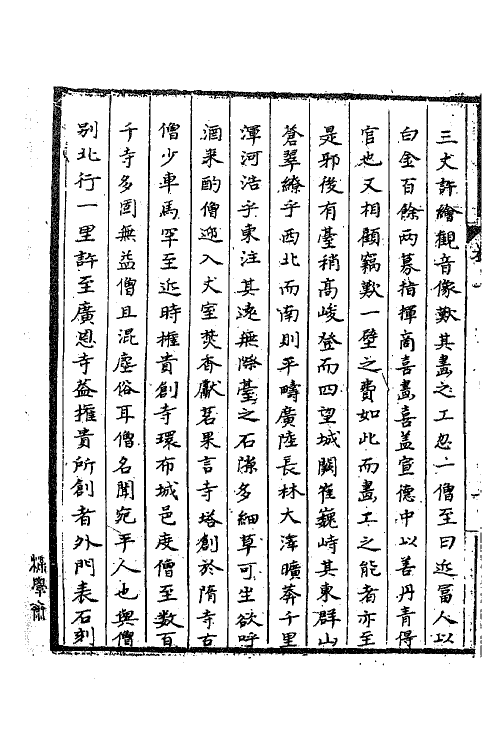 三丈許繪觀音像歎其畫之工忽一僧至曰近冨人以
白金百餘两募指揮商喜畫喜盖宣德中以善丹青得
官也又相顧竊歎一壁之費如此而畫工之能者亦至
是邪後有臺稍高峻登而四望城闕崔巍峙其東群山
蒼翠繚乎西北而南則平疇廣陸長林大澤曠莽千里
渾河浩乎東注其遠無際臺之石隙多細草可坐欲呼
酒来酌僧迎入丈室焚香獻茗果言寺塔創於隋寺古
僧少車馬罕至近時權貴創寺環布城邑度僧至数百
千寺多固無益僧且混塵俗耳僧名聞宛平人也與僧
别北行一里許至廣恩寺益權貴所創者外門表石刻